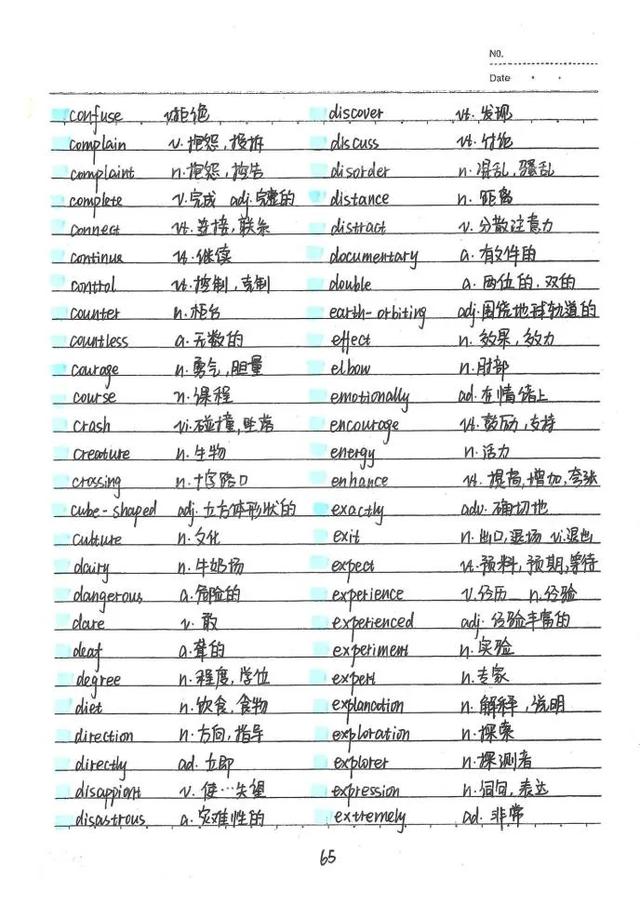 NO.
Date
confuse v拒绝
complain v. 抱怨,投拆
complaint n. 抱怨,控告
complete v.完成 adj.完整的
connect vt. 连接,联系
continue vt. 继续
control vt. 控制,克制
counter n. 柜台
countless a. 无数的
courage n. 勇气,胆量
course n. 课程
crash vi. 碰撞,坠落
creature n. 生物
crossing n. 十字路口
cube-shaped adj. 立方体形状的
culture n. 文化
dairy n. 牛奶场
dangerous a. 危险的
dare v. 敢
deaf a. 聋的
degree n. 程度,学位
diet n. 饮食,食物
direction n. 方向,指导
directly ad. 立即
disappiont v. 使…失望
disastrous a. 灾难性的
discover vt. 发现
discuss vt. 讨论
disorder n. 混乱,骚乱
distance n. 距离
distract v. 分散注意力
documentary a. 有文件的
double a. 两位的,双的
earth-orbiting adj.围绕地球轨道的
effect n. 效果,效力
elbow n. 肘部
emotionally ad. 在情绪上
encourage vt. 鼓励,支持
energy n. 活力
enhance vt. 提高,增加,夸张
exactly adv. 确切地
exit n. 出口,退场 vi.退出
expect vt. 预料,预期,等待
experience v.经历 n.经验
experienced adj. 经验丰富的
experiment n. 实验
expert n. 专家
explanation n. 解释,说明
exploration n. 探索
explorer n. 探测者
expression n. 词句,表达
extremely ad. 非常
65